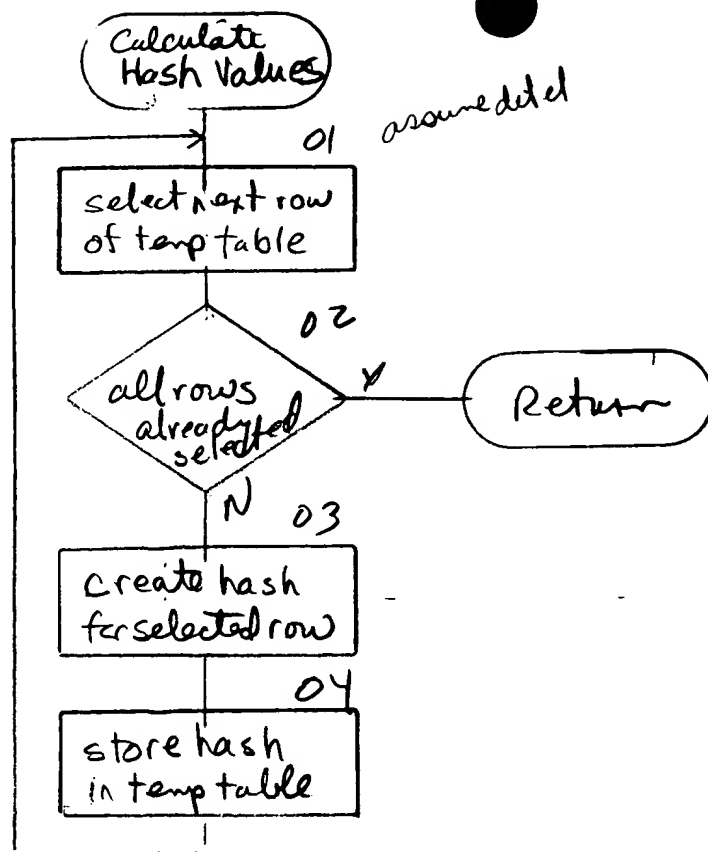 Calculate
Hash Values
01
select next row
of temp table
02
all rows
already
selected
Y
Return
N
03
create hash
for selected row
04
store hash
in temp table